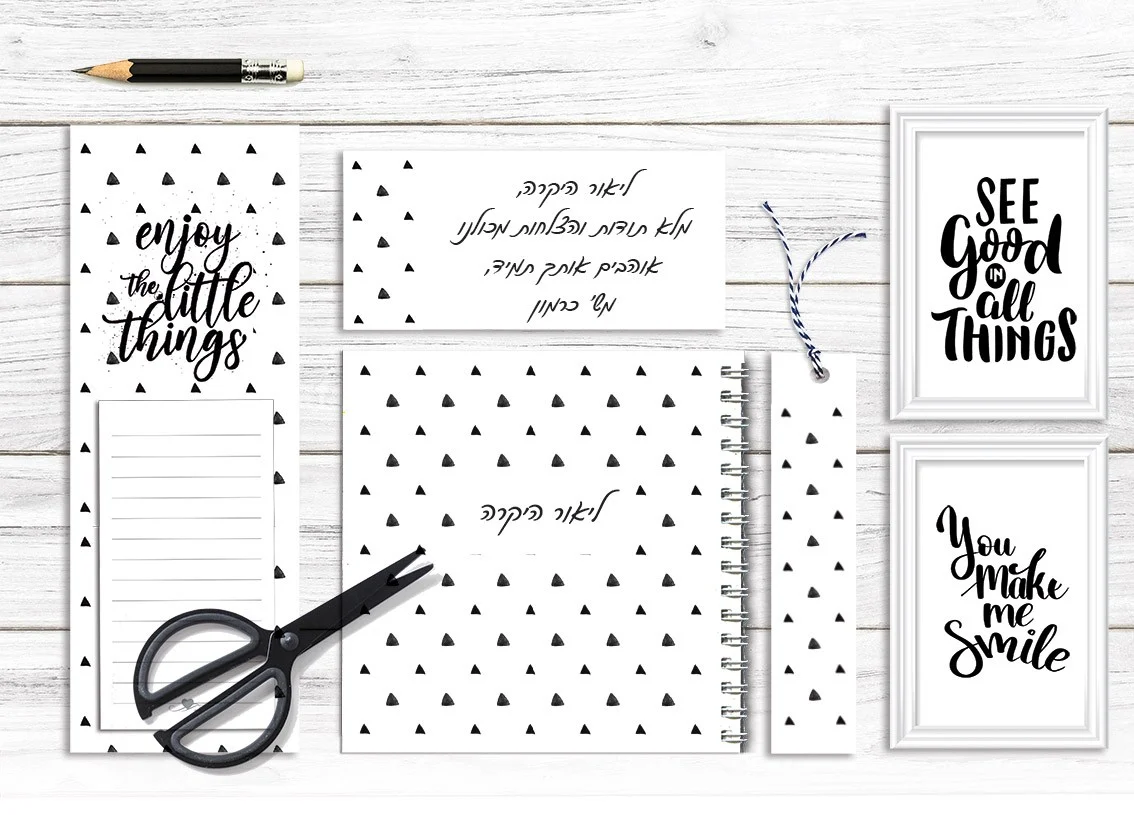 enjoy
the little
things
ליאור היקרה,
מלא תודות והצלחות מכולנו
אוהבים אותך תמיד,
משי כרמון
ליאור היקרה
SEE
Good
IN
all
THINGS
You
make
me
Smile